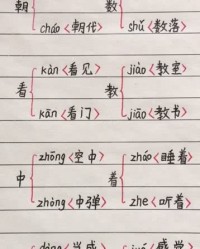 朝 数
cháo〈朝代〉 shǔ〈数落〉
kàn〈看见〉 jiào〈教室〉
看 教
kān〈看门〉 jiāo〈教书〉
zhōng〈空中〉 zháo〈睡着〉
中 着
zhòng〈中弹〉 zhe〈听着〉